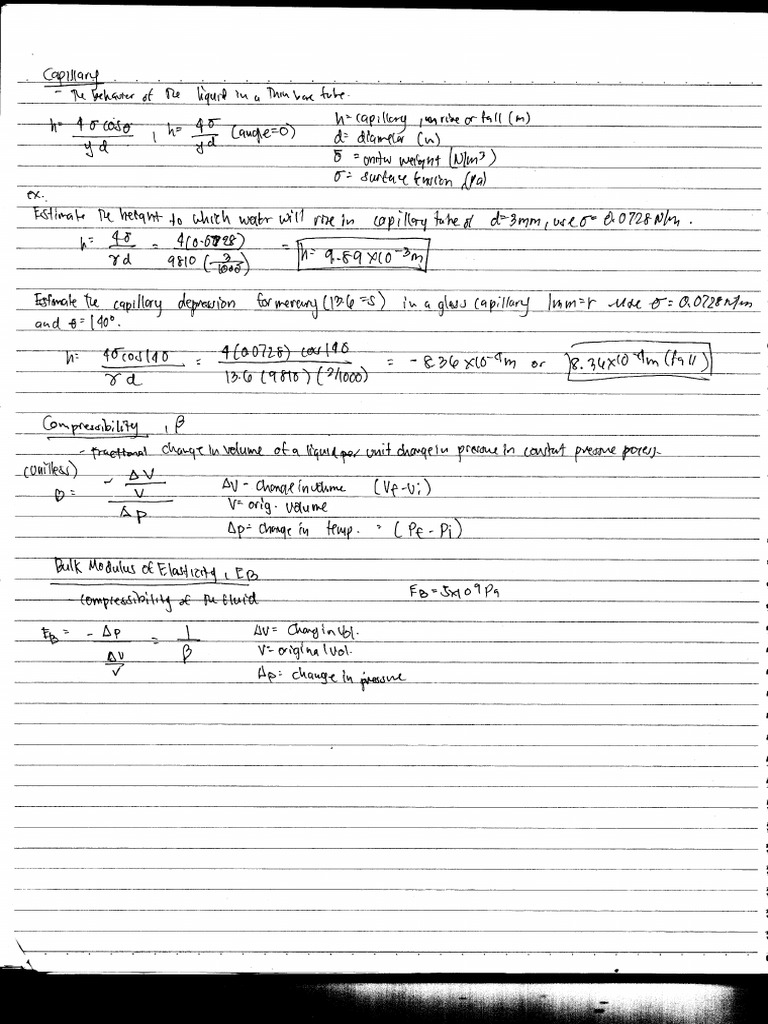 Capillary
- The behavior of the liquid in a thin bore tube.
h = 4σcosθ / γd , h = 4σ / γd (angle=0)
h = capillary rise or fall (m)
d = diameter (m)
γ = unit weight (N/m³)
σ = surface tension (Pa)
ex.
Estimate the height to which water will rise in capillary tube of d=3mm, use σ= 0.0728 N/m.
h= 4σ / γd = 4(0.0728) / 9810 (3/1000) = h= 9.89 x10⁻³m
Estimate the capillary depression for mercury (13.6=s) in a glass capillary 1mm=r use σ= 0.0728 N/m
and θ=140°.
h= 4σcos140 / γd = 4(0.0728) cos140 / 13.6 (9810) (2/1000) = -8.36 x10⁻⁴m or 8.36x10⁻⁴m (fall)
Compressibility , β
- fractional change in volume of a liquid per unit change in pressure in constant pressure process.
(unitless)
β = - ΔV/V / Δp
ΔV - change in volume (Vf-Vi)
V= orig. volume
Δp= change in temp. = (Pf - Pi)
Bulk Modulus of Elasticity , EB
- compressibility of the fluid
EB = 5x10 9 Pa
EB = -Δp / ΔV/V = 1/β
ΔV= Change in Vol.
V= original vol.
Δp= change in pressure